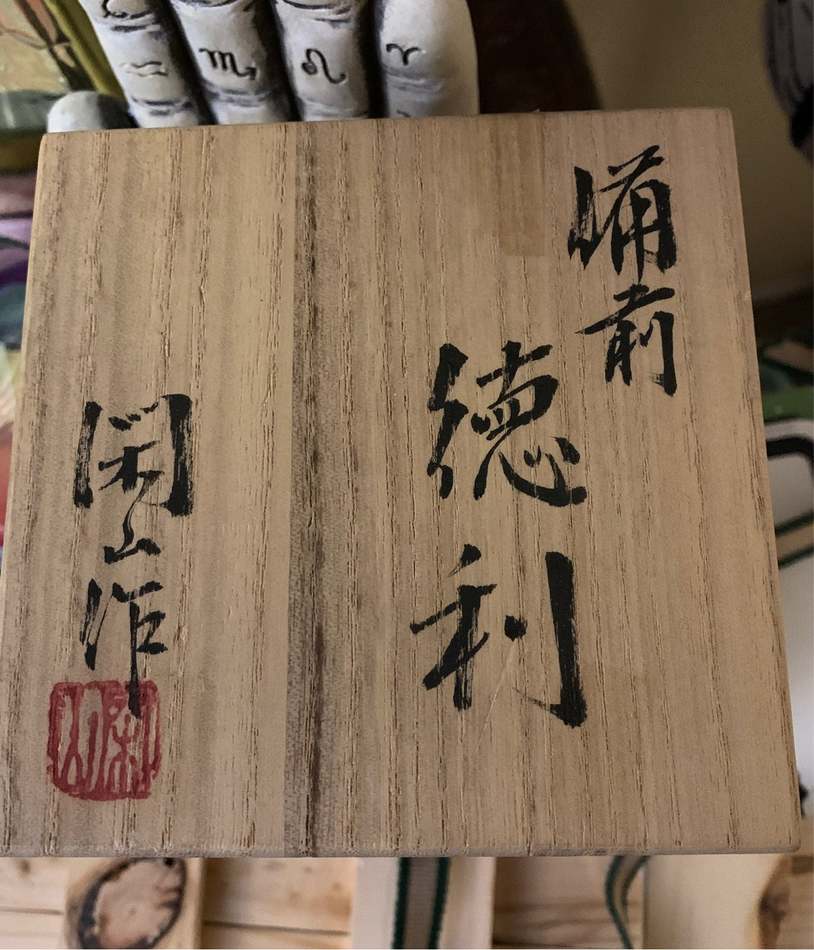 備前
徳利
閑山作